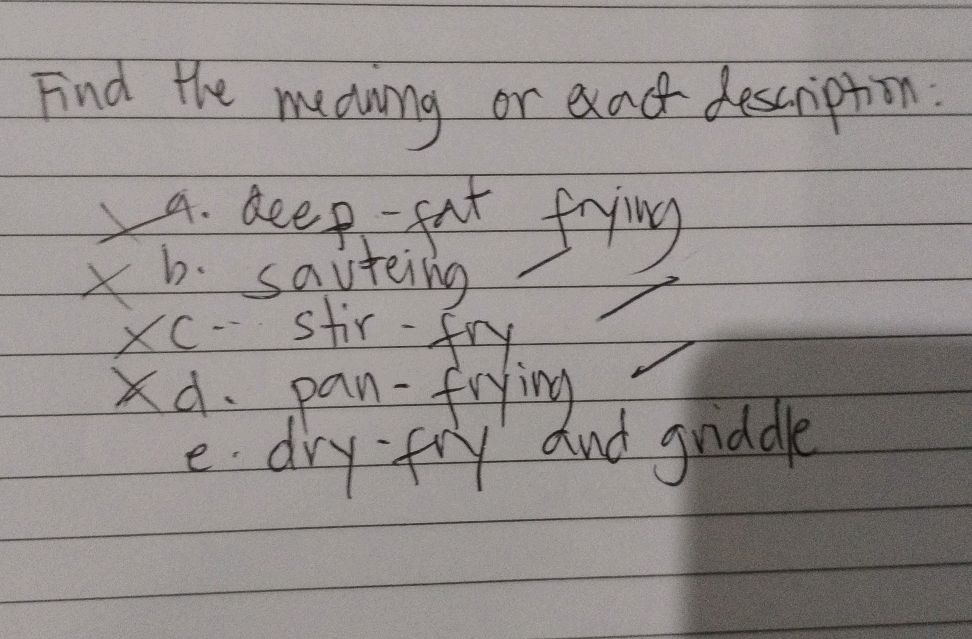 Find the meaning or exact description:
a. deep-fat frying
b. sauteing
c-- stir-fry
d. pan-frying
e. dry-fry and griddle